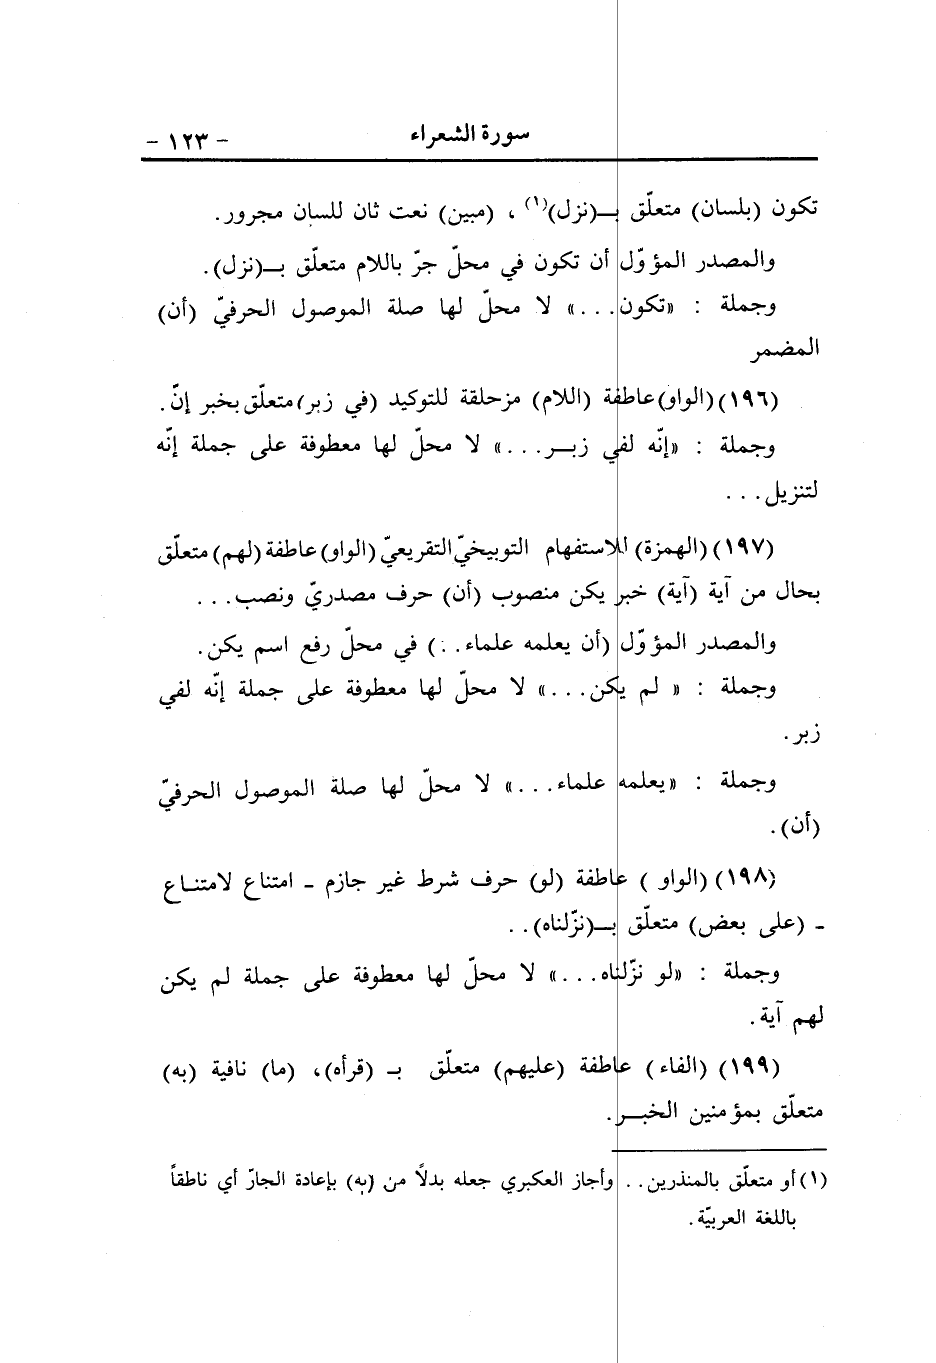 سورة الشعراء - ١٢٣ -
تكون (بلسان) متعلّق بـ(نزل)(١) ، (مبين) نعت ثان للسان مجرور.
والمصدر المؤوّل أن تكون في محلّ جرّ باللام متعلّق بـ(نزل).
وجملة : «تكون...» لا محلّ لها صلة الموصول الحرفيّ (أن)
المضمر
(١٩٦) (الواو) عاطفة (اللام) مزحلقة للتوكيد (في زبر) متعلّق بخبر إنّ.
وجملة : «إنّه لفي زبـر...» لا محلّ لها معطوفة على جملة إنّه
لتنزيل...
(١٩٧) (الهمزة) للاستفهام التوبيخيّ التقريعيّ (الواو) عاطفة (لهم) متعلّق
بحال من آية (آية) خبر يكن منصوب (أن) حرف مصدريّ ونصب...
والمصدر المؤوّل (أن يعلمه علماء..) في محلّ رفع اسم يكن.
وجملة : « لم يكن...» لا محلّ لها معطوفة على جملة إنّه لفي
زبر.
وجملة : «يعلمه علماء...» لا محلّ لها صلة الموصول الحرفيّ
(أن).
(١٩٨) (الواو ) عاطفة (لو) حرف شرط غير جازم - امتناع لامتنـاع
- (على بعض) متعلّق بـ(نزّلناه)..
وجملة : «لو نزّلناه...» لا محلّ لها معطوفة على جملة لم يكن
لهم آية.
(١٩٩) (الفاء) عاطفة (عليهم) متعلّق بـ (قرأه)، (ما) نافية (به)
متعلّق بمؤمنين الخبـر.
(١) أو متعلّق بالمنذرين.. وأجاز العكبري جعله بدلاً من (به) بإعادة الجارّ أي ناطقاً
باللغة العربيّة.